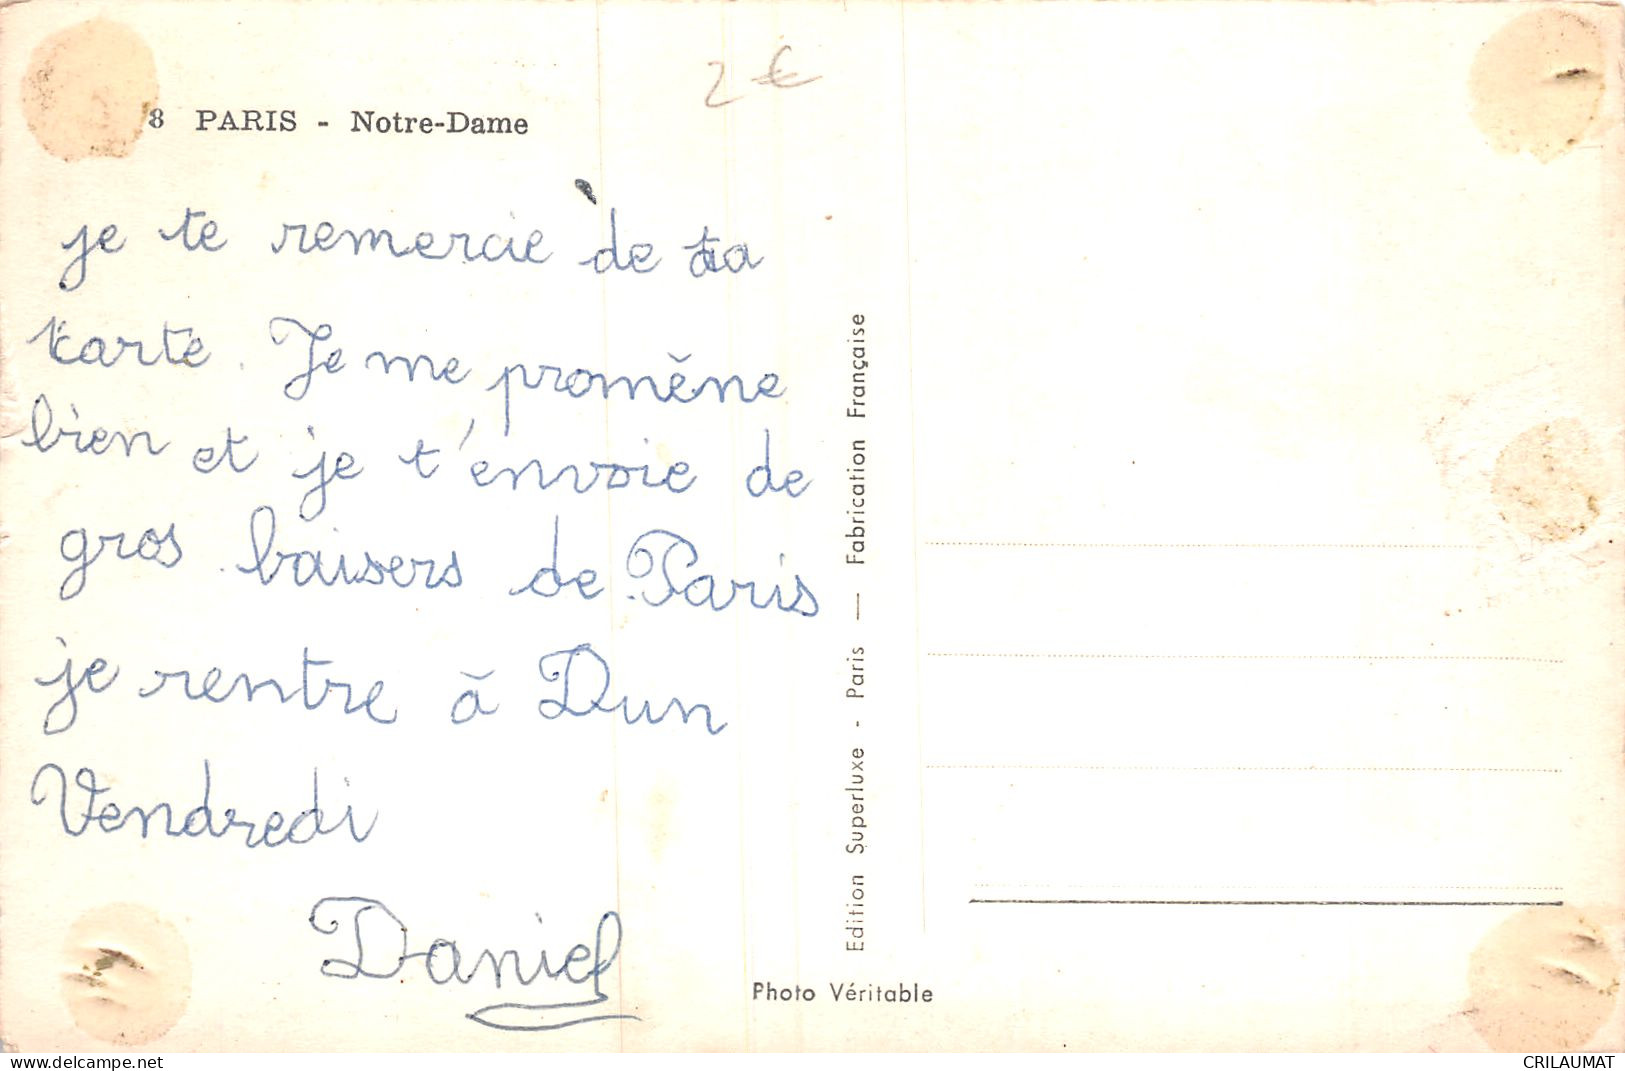 2 €
8 PARIS - Notre-Dame
je te remercie de ta
carte. Je me promène
bien et je t'envoie de
gros baisers de Paris
je rentre à Dun
Vendredi
Daniel
Edition Superluxe - Paris — Fabrication Française
Photo Véritable
www.delcampe.net
CRILAUMAT